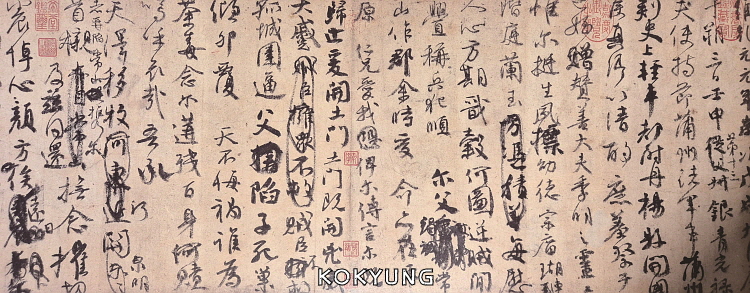 三日壬申第十三叔銀青光祿
夫使持節蒲州諸軍事蒲州
刺史上輕車都尉丹楊縣開國
侯真卿以清酌庶羞祭于
亡姪贈贊善大夫季明之靈
惟爾挺生夙標幼德宗廟瑚璉
階庭蘭玉方憑積善每慰
人心方期戩穀何圖逆賊閒
釁稱兵犯順爾父竭誠常
山作郡余時受命亦在平
原仁兄愛我恐俾爾傳言爾
歸止爰開土門土門既開兇威
大蹙賊臣擁眾不救賊臣
孤城圍逼父陷子死巢
傾卵覆天不悔禍誰為
荼毒念爾遘殘百身何贖
嗚呼哀哉吾承
天澤移牧河關泉明
比者再陷常山攜爾
首櫬及茲同還撫念摧切
震悼心顏方俟遠日
KOKYUNG